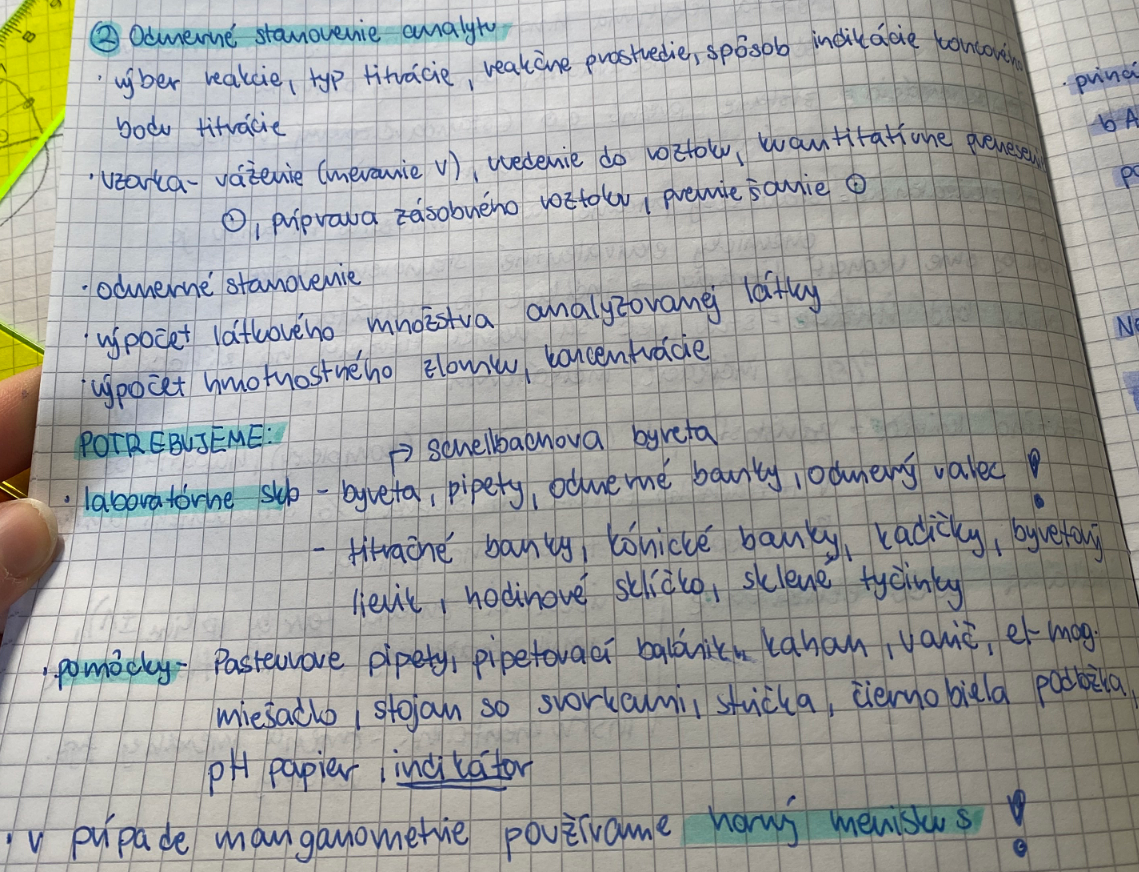 ② Odmerné stanovenie analytu
· výber reakcie, typ titrácie, reakčné prostredie, spôsob indikácie koncového
bodu titrácie
· vzorka - váženie (meranie V), uvedenie do roztoku, kvantitatívne
⊙, príprava zásobného roztoku, premiešanie ⊙
· odmerné stanovenie
· výpočet látkového množstva analyzovanej látky
· výpočet hmotnostného zlomku, koncentrácie
POTREBUJEME:
→ schellbachova byreta
· laboratórne sklo - byreta, pipety, odmerné banky, odmerný valec !
- titračné banky, kónické banky, kadičky, byretový
lievik, hodinové sklíčko, sklené tyčinky
· pomôcky - Pasteurove pipety, pipetovací balónik, kahan, varič, el-mag.
miešadlo, stojan so svorkami, strička, čiernobiela podložka,
pH papier, indikátor
· v prípade manganometrie používame horný meniskus !
princí
b A